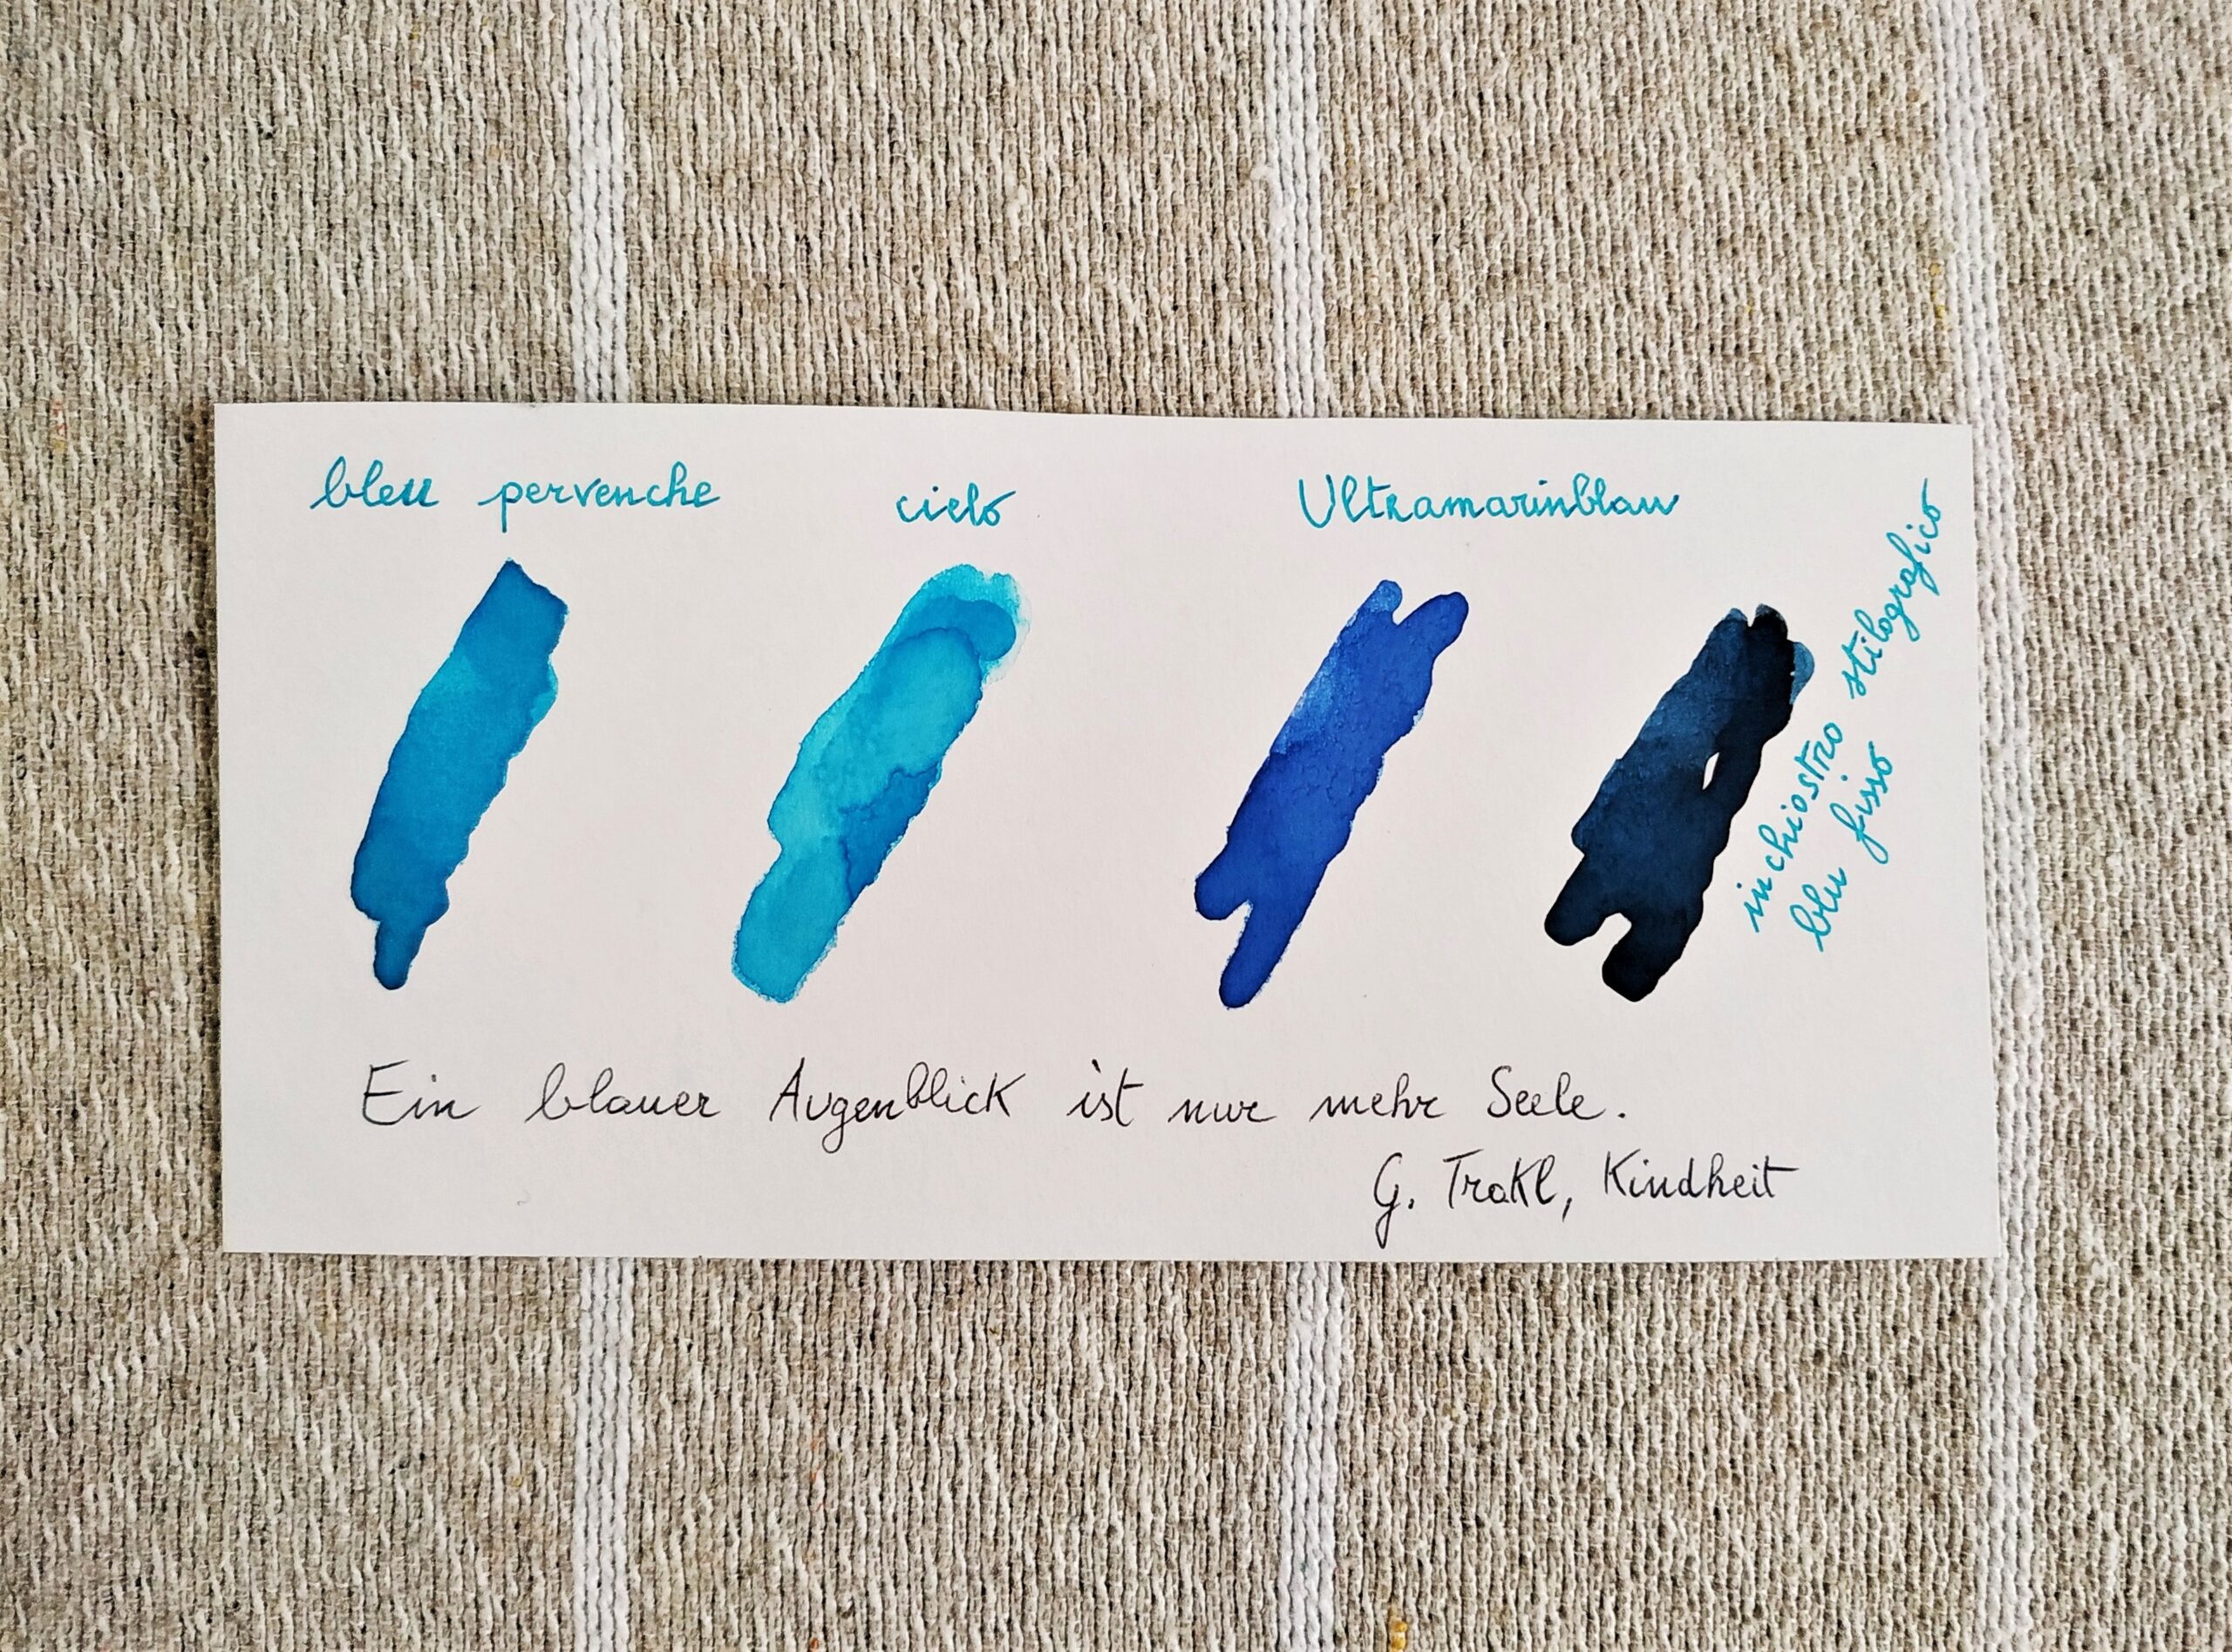 bleu pervenche
cielo
Ultramarinblau
inchiostro stilografico
blu fisso
Ein blauer Augenblick ist nur mehr Seele.
G. Trakl, Kindheit